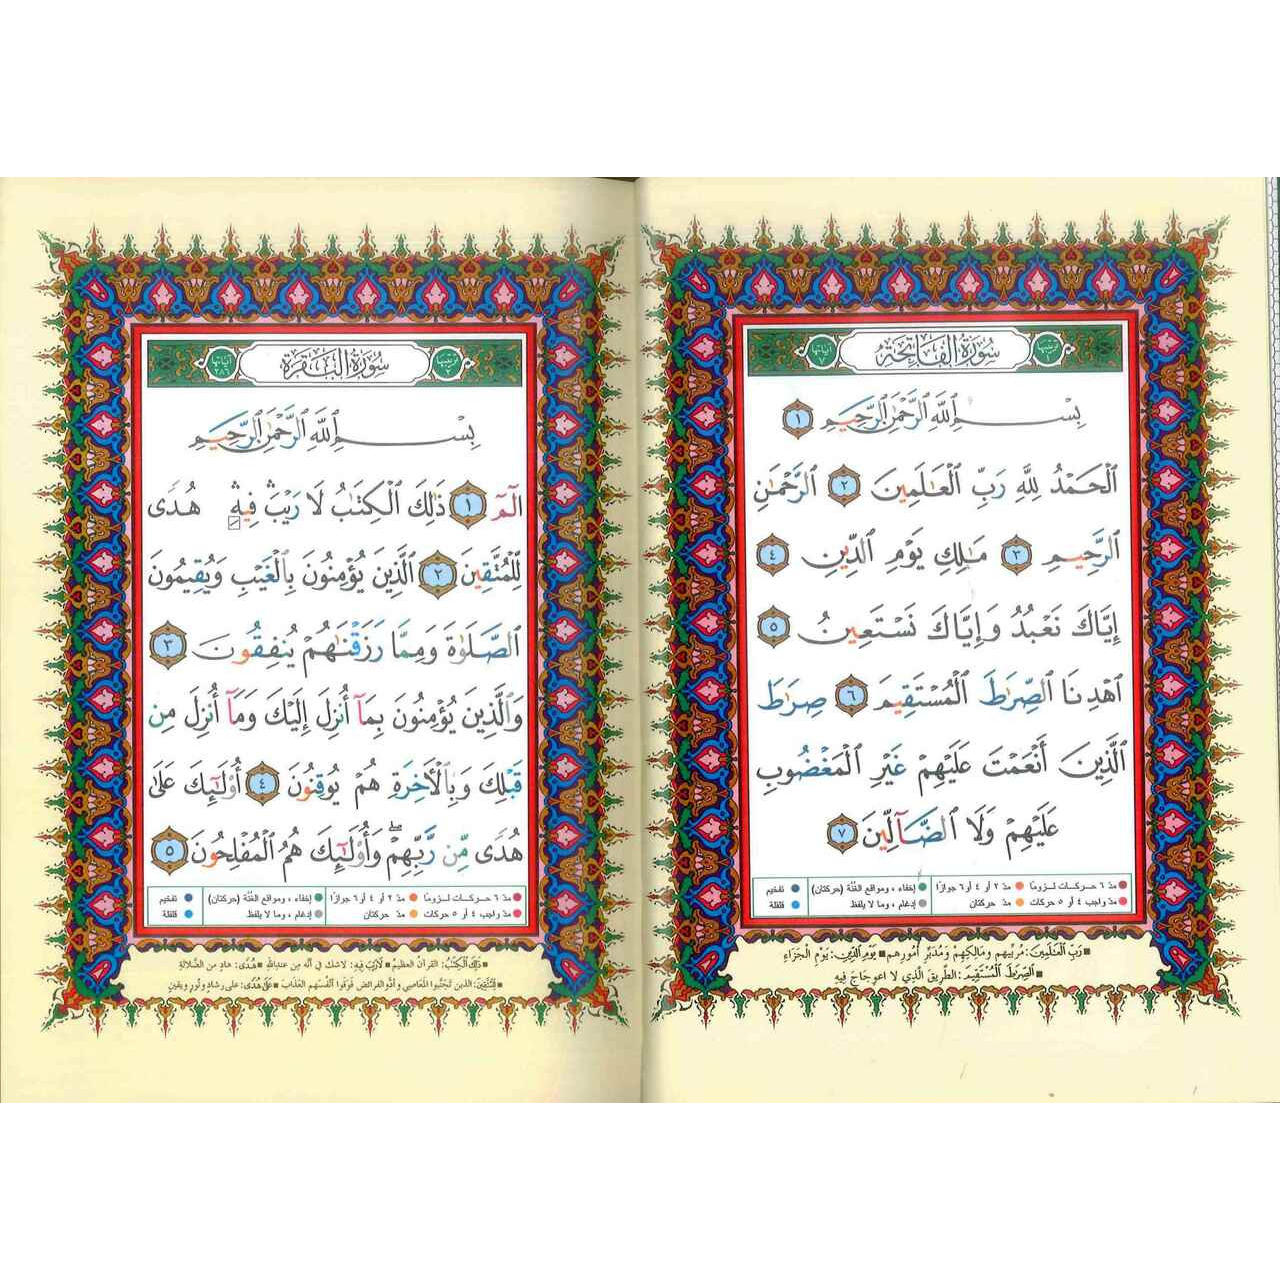 ترتيبها ١ سُورَةُ الفَاتِحَة آياتها ٧
بِسْمِ ٱللَّهِ ٱلرَّحْمَٰنِ ٱلرَّحِيمِ ١
ٱلْحَمْدُ لِلَّهِ رَبِّ ٱلْعَٰلَمِينَ ٢ ٱلرَّحْمَٰنِ
ٱلرَّحِيمِ ٣ مَٰلِكِ يَوْمِ ٱلدِّينِ ٤
إِيَّاكَ نَعْبُدُ وَإِيَّاكَ نَسْتَعِينُ ٥
ٱهْدِنَا ٱلصِّرَٰطَ ٱلْمُسْتَقِيمَ ٦ صِرَٰطَ
ٱلَّذِينَ أَنْعَمْتَ عَلَيْهِمْ غَيْرِ ٱلْمَغْضُوبِ
عَلَيْهِمْ وَلَا ٱلضَّآلِّينَ ٧
مدّ ٦ حركات لـزومـاً مدّ ٢ أو ٤ أو ٦ جوازاً إخفاء ، ومواقع الغُنَّة (حركتان) تفخيم
مدّ واجب ٤ أو ٥ حركات مدّ حركتان إدغام ، وما لا يلفظ قلقلة
رَبِّ ٱلْعَٰلَمِينَ: مُربِّيهم ومَالِكِهِمْ وَمُدَبِّر أُمُورِهم ■ يَوْمِ ٱلدِّينِ: يَوْمِ الجَزَاءِ
■ ٱلصِّرَٰطَ ٱلْمُسْتَقِيمَ: الطَّرِيقَ الَّذِي لا اعوِجَاجَ فِيهِ
ترتيبها ٢ سُورَةُ البَقَرَة آياتها ٢٨٦
بِسْمِ ٱللَّهِ ٱلرَّحْمَٰنِ ٱلرَّحِيمِ
الٓمٓ ١ ذَٰلِكَ ٱلْكِتَٰبُ لَا رَيْبَ ۛ فِيهِ ۛ هُدًى
لِّلْمُتَّقِينَ ٢ ٱلَّذِينَ يُؤْمِنُونَ بِٱلْغَيْبِ وَيُقِيمُونَ
ٱلصَّلَوٰةَ وَمِمَّا رَزَقْنَٰهُمْ يُنفِقُونَ ٣
وَٱلَّذِينَ يُؤْمِنُونَ بِمَآ أُنزِلَ إِلَيْكَ وَمَآ أُنزِلَ مِن
قَبْلِكَ وَبِٱلْأَخِرَةِ هُمْ يُوقِنُونَ ٤ أُو۟لَٰٓئِكَ عَلَىٰ
هُدًى مِّن رَّبِّهِمْ ۖ وَأُو۟لَٰٓئِكَ هُمُ ٱلْمُفْلِحُونَ ٥
مدّ ٦ حركات لـزومـاً مدّ ٢ أو ٤ أو ٦ جوازاً إخفاء ، ومواقع الغُنَّة (حركتان) تفخيم
مدّ واجب ٤ أو ٥ حركات مدّ حركتان إدغام ، وما لا يلفظ قلقلة
■ ذَٰلِكَ ٱلْكِتَٰبُ: القرآن العظيم ■ لَا رَيْبَ فِيهِ: لاشك في أنّه من عند الله ■ هُدًى: هادٍ من الضَّلالةِ
■ لِّلْمُتَّقِينَ: الذين تجنَّبوا المعاصي وأدَّوا الفرائض فَوَقَوا أنفُسَهم العذاب ■ عَلَىٰ هُدًى: على رشادٍ ونُورٍ ويقينٍ